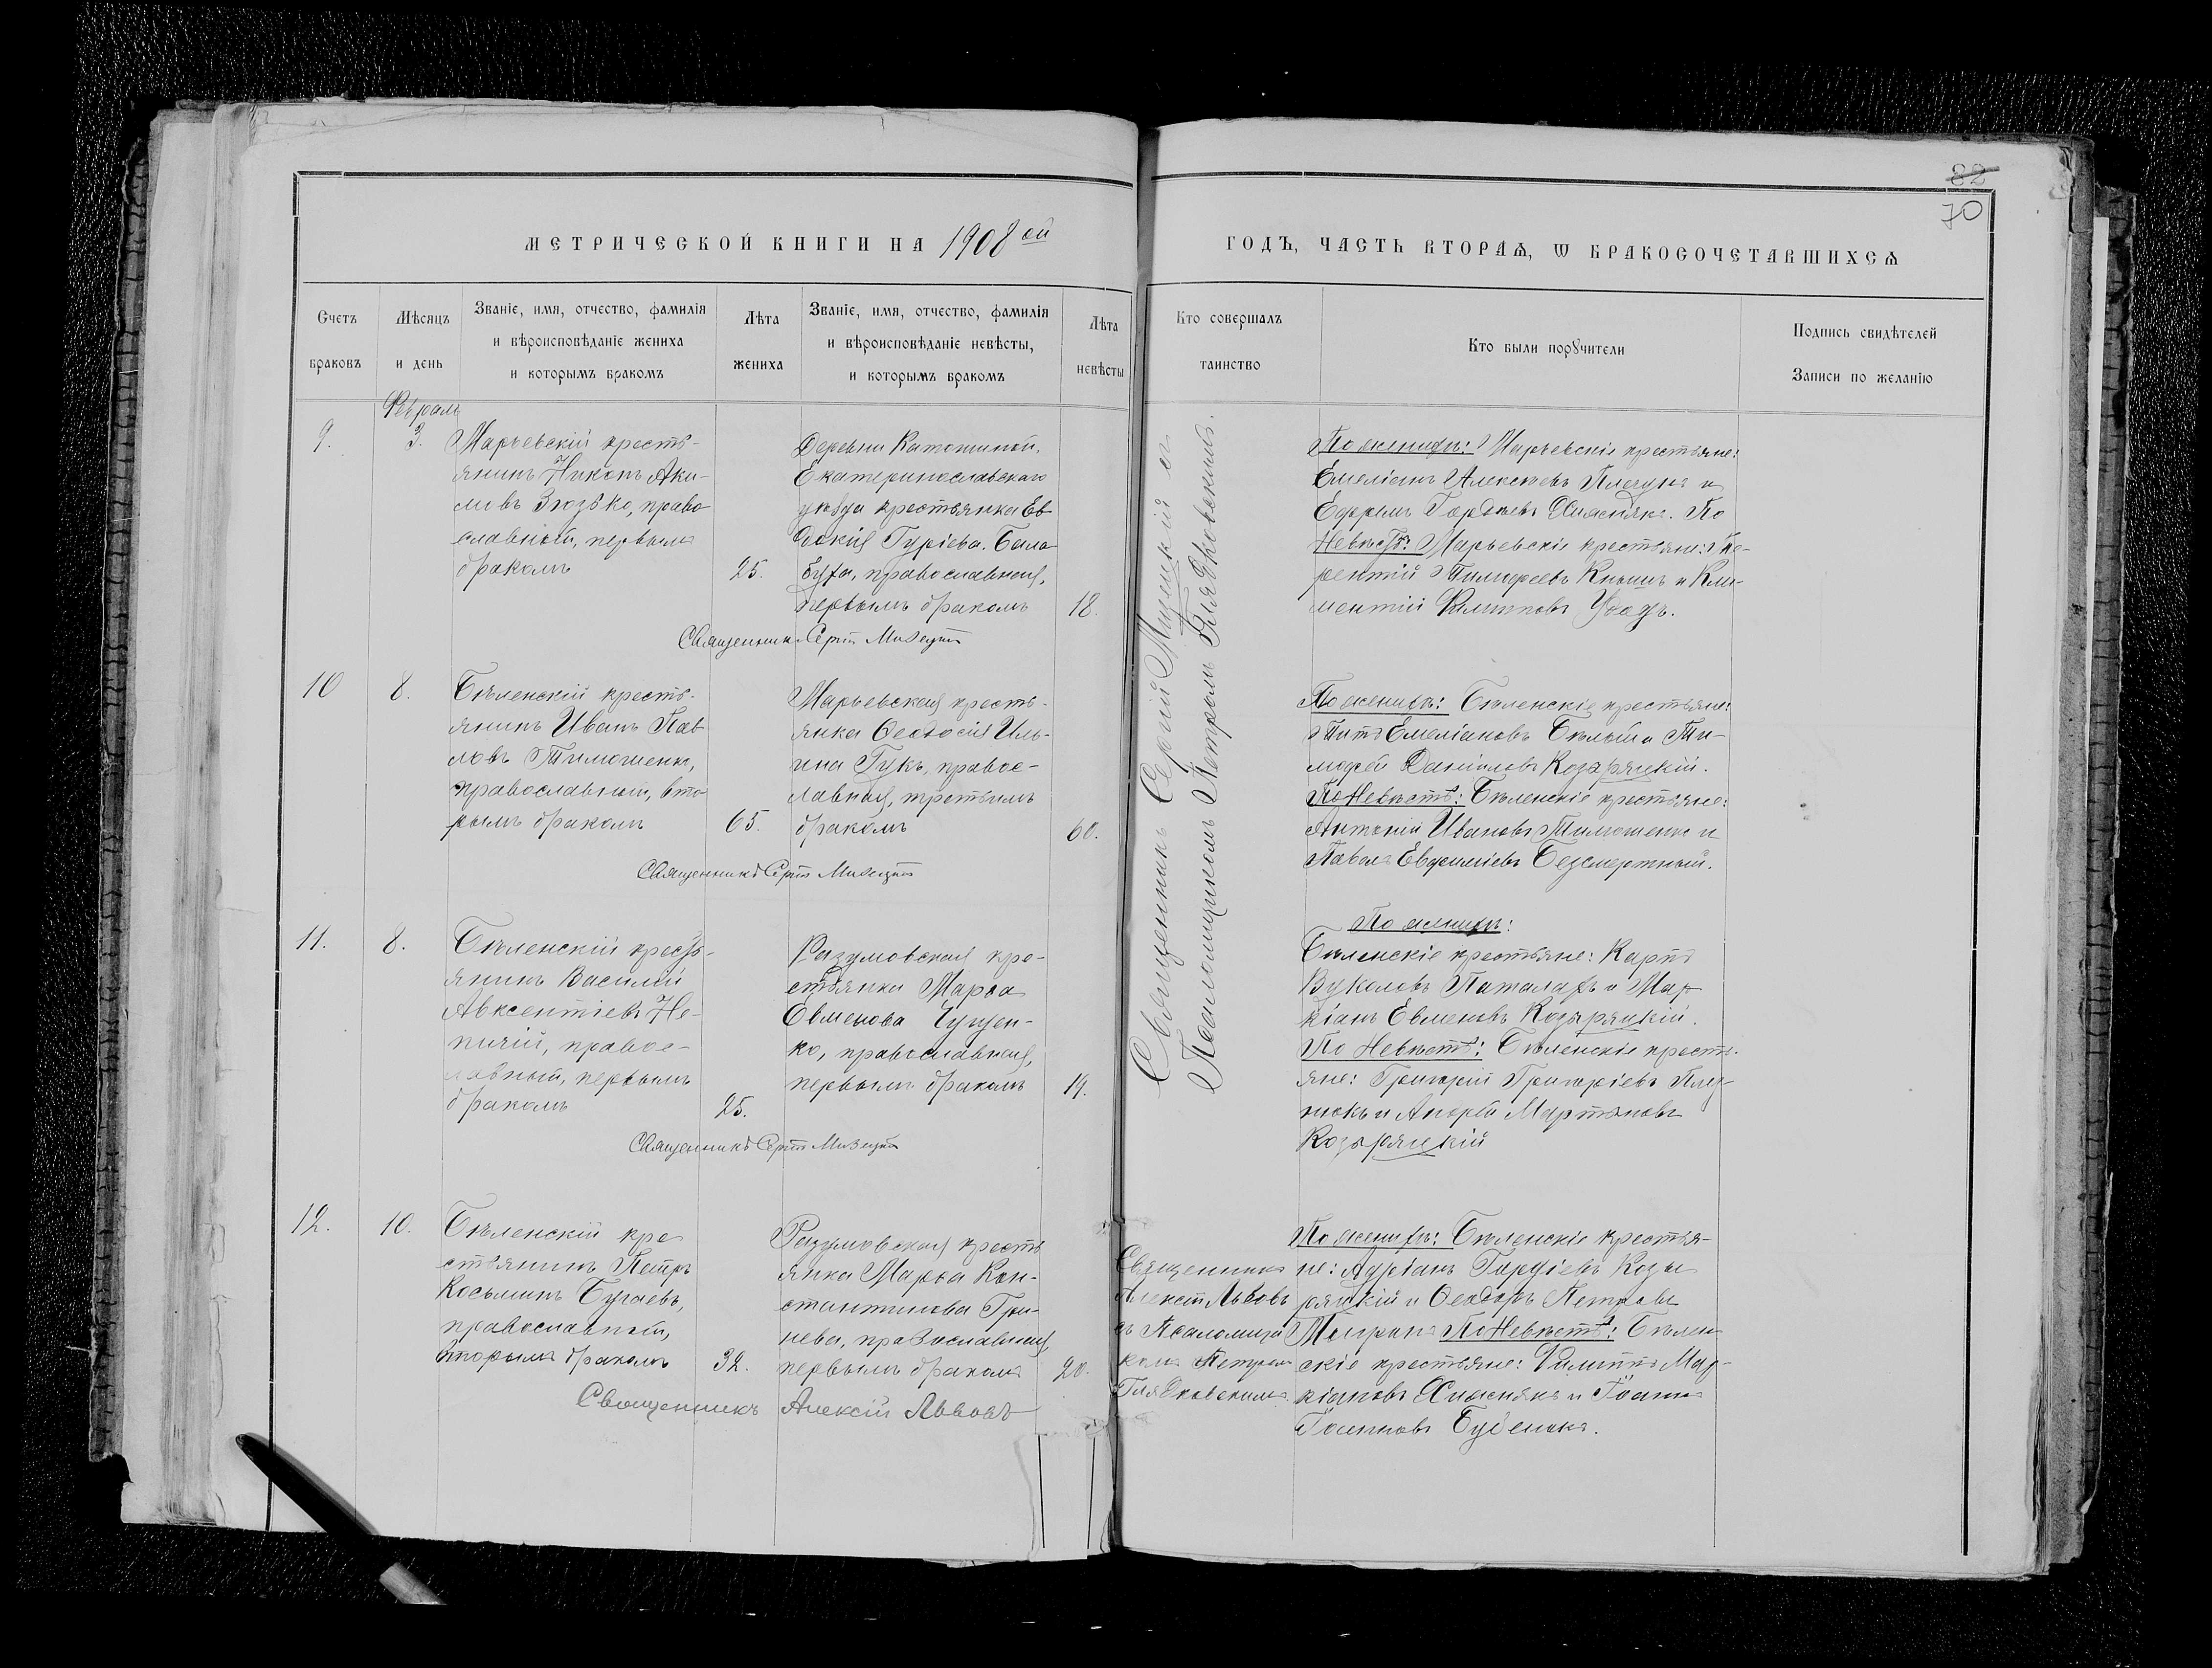 82
70
МЕТРИЧЕСКОЙ КНИГИ НА 1908 ой
ГОДЪ, ЧАСТЬ ВТОРАѦ, Ѡ БРАКОСОЧЕТАВШИХСѦ
Счетъ
браковъ
Мѣсяцъ
и день
Званіе, имя, отчество, фамилія
и вѣроисповѣданіе жениха
и которымъ бракомъ
Лѣта
жениха
Званіе, имя, отчество, фамилія
и вѣроисповѣданіе невѣсты,
и которымъ бракомъ
Лѣта
невѣсты
Кто совершалъ
таинство
Кто были порꙋчители
Подпись свидѣтелей
Записи по желанію
Февраль
9.
3.
Марьевскій кресть-
янинъ Никонъ Аки-
мовъ Зюзько, право
славный, первымъ
бракомъ
25.
Деревни
Екатеринославскаго
уѣзда крестьянка Ев
докія Гуріева Бала
буха, православная,
первымъ бракомъ
18.
Священникъ Сергій
По женихѣ: Марьевскіе крестьяне:
Емеліанъ Алексѣевъ Плагуна и
Ефремъ Гордѣевъ Хиаснякъ. По
Невѣстѣ: Марьевскіе крестьяне: Те-
рентій Тимофеевъ Кнышъ и Кли-
ментій Филипповъ
10
8.
Бѣленскій кресть-
янинъ Иванъ Пав
ловъ Тимошенко,
православный, вто-
рымъ бракомъ
65.
Марьевская кресть-
янка Ѳеодосія Иль-
ина Гукъ, правос-
лавная, третьимъ
бракомъ
60.
Священникъ Сергій
По женихѣ: Бѣленскіе крестьяне:
Титъ Емеліановъ Бѣлый и Ти-
мофей Даніиловъ Козыряцкій.
По Невѣстѣ: Бѣленскіе крестьяне:
Антоній Ивановъ Тимошенко и
Павелъ Евфиміевъ Безсмертный.
11.
8.
Бѣленскій кресть-
янинъ Василій
Авксентіевъ Не-
пичій, правос-
лавный, первымъ
бракомъ
25.
Разумовская кре-
стьянка Марѳа
Евменова Гущен-
ко, православная,
первымъ бракомъ
19.
Священникъ Сергій
По женихѣ:
Бѣленскіе крестьяне: Карпъ
Вуколовъ Паталахъ и Мар
кіанъ Евменовъ Козыряцкій.
По Невѣстѣ: Бѣленскіе кресть-
яне: Григорій Григоріевъ
и Андрей Мартыновъ
Козыряцкій
Священникъ Сергій съ
Псаломщикомъ Петромъ Гнядковскимъ.
12.
10.
Бѣленскій кре
стьянинъ Петръ
Косьминъ Бугаевъ,
православный,
вторымъ бракомъ
32.
Разумовская кресть
янка Марѳа Кон-
стантинова Гри-
нева, православная,
первымъ бракомъ
20.
Священникъ Алексій Львовъ
Священникъ
Алексій Львовъ
съ Псаломщи
комъ Петромъ
Гнядковскимъ.
По женихѣ: Бѣленскіе крестья-
не: Адріанъ Гордіевъ Козы
ряцкій и Ѳеодоръ Петровъ
По Невѣстѣ: Бѣлен
скіе крестьяне: Филиппъ Мар-
кіановъ Хиаснякъ и Іоаннъ
Іоанновъ Бубенокъ.